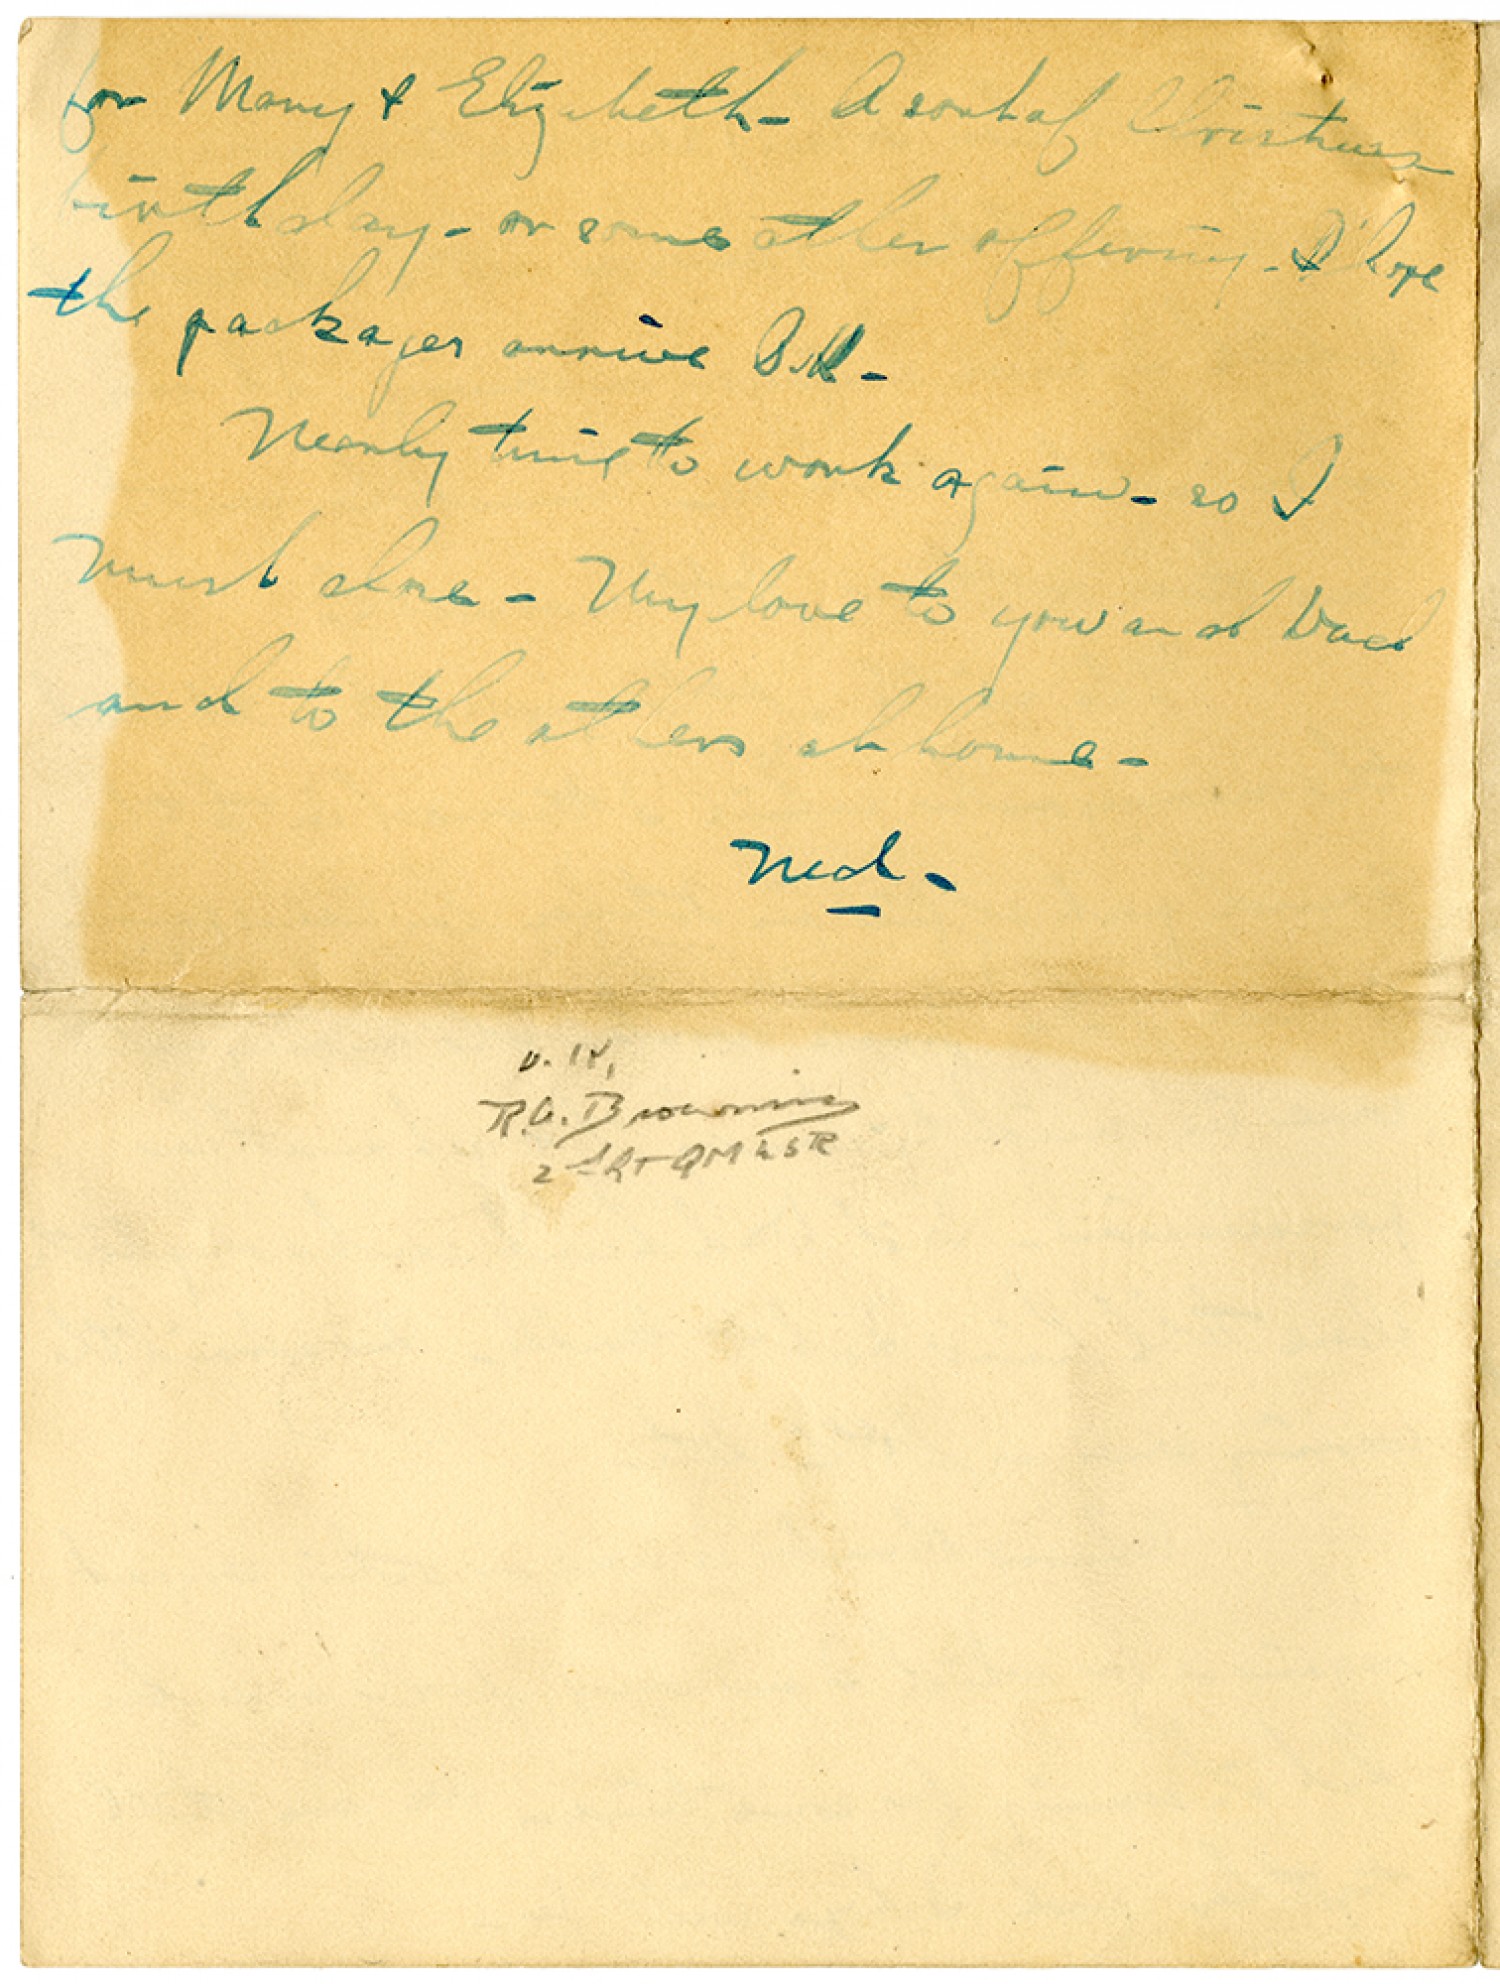 for Mary & Elizabeth - A sort of Christmas
birthday - or some other offering - I hope
the packages arrive O.K. -
Nearly time to work again - so I
must close - My love to you and Dad
and to the others at home -
Ned -
R.O. Browning
2nd Lt QM USR